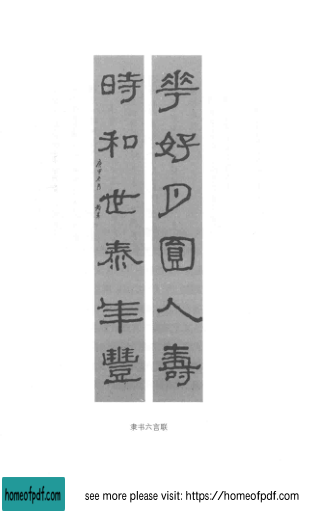 華好月圓人壽
時和世泰年豐
隶书六言联
homeofpdf.com
see more please visit: https://homeofpdf.com